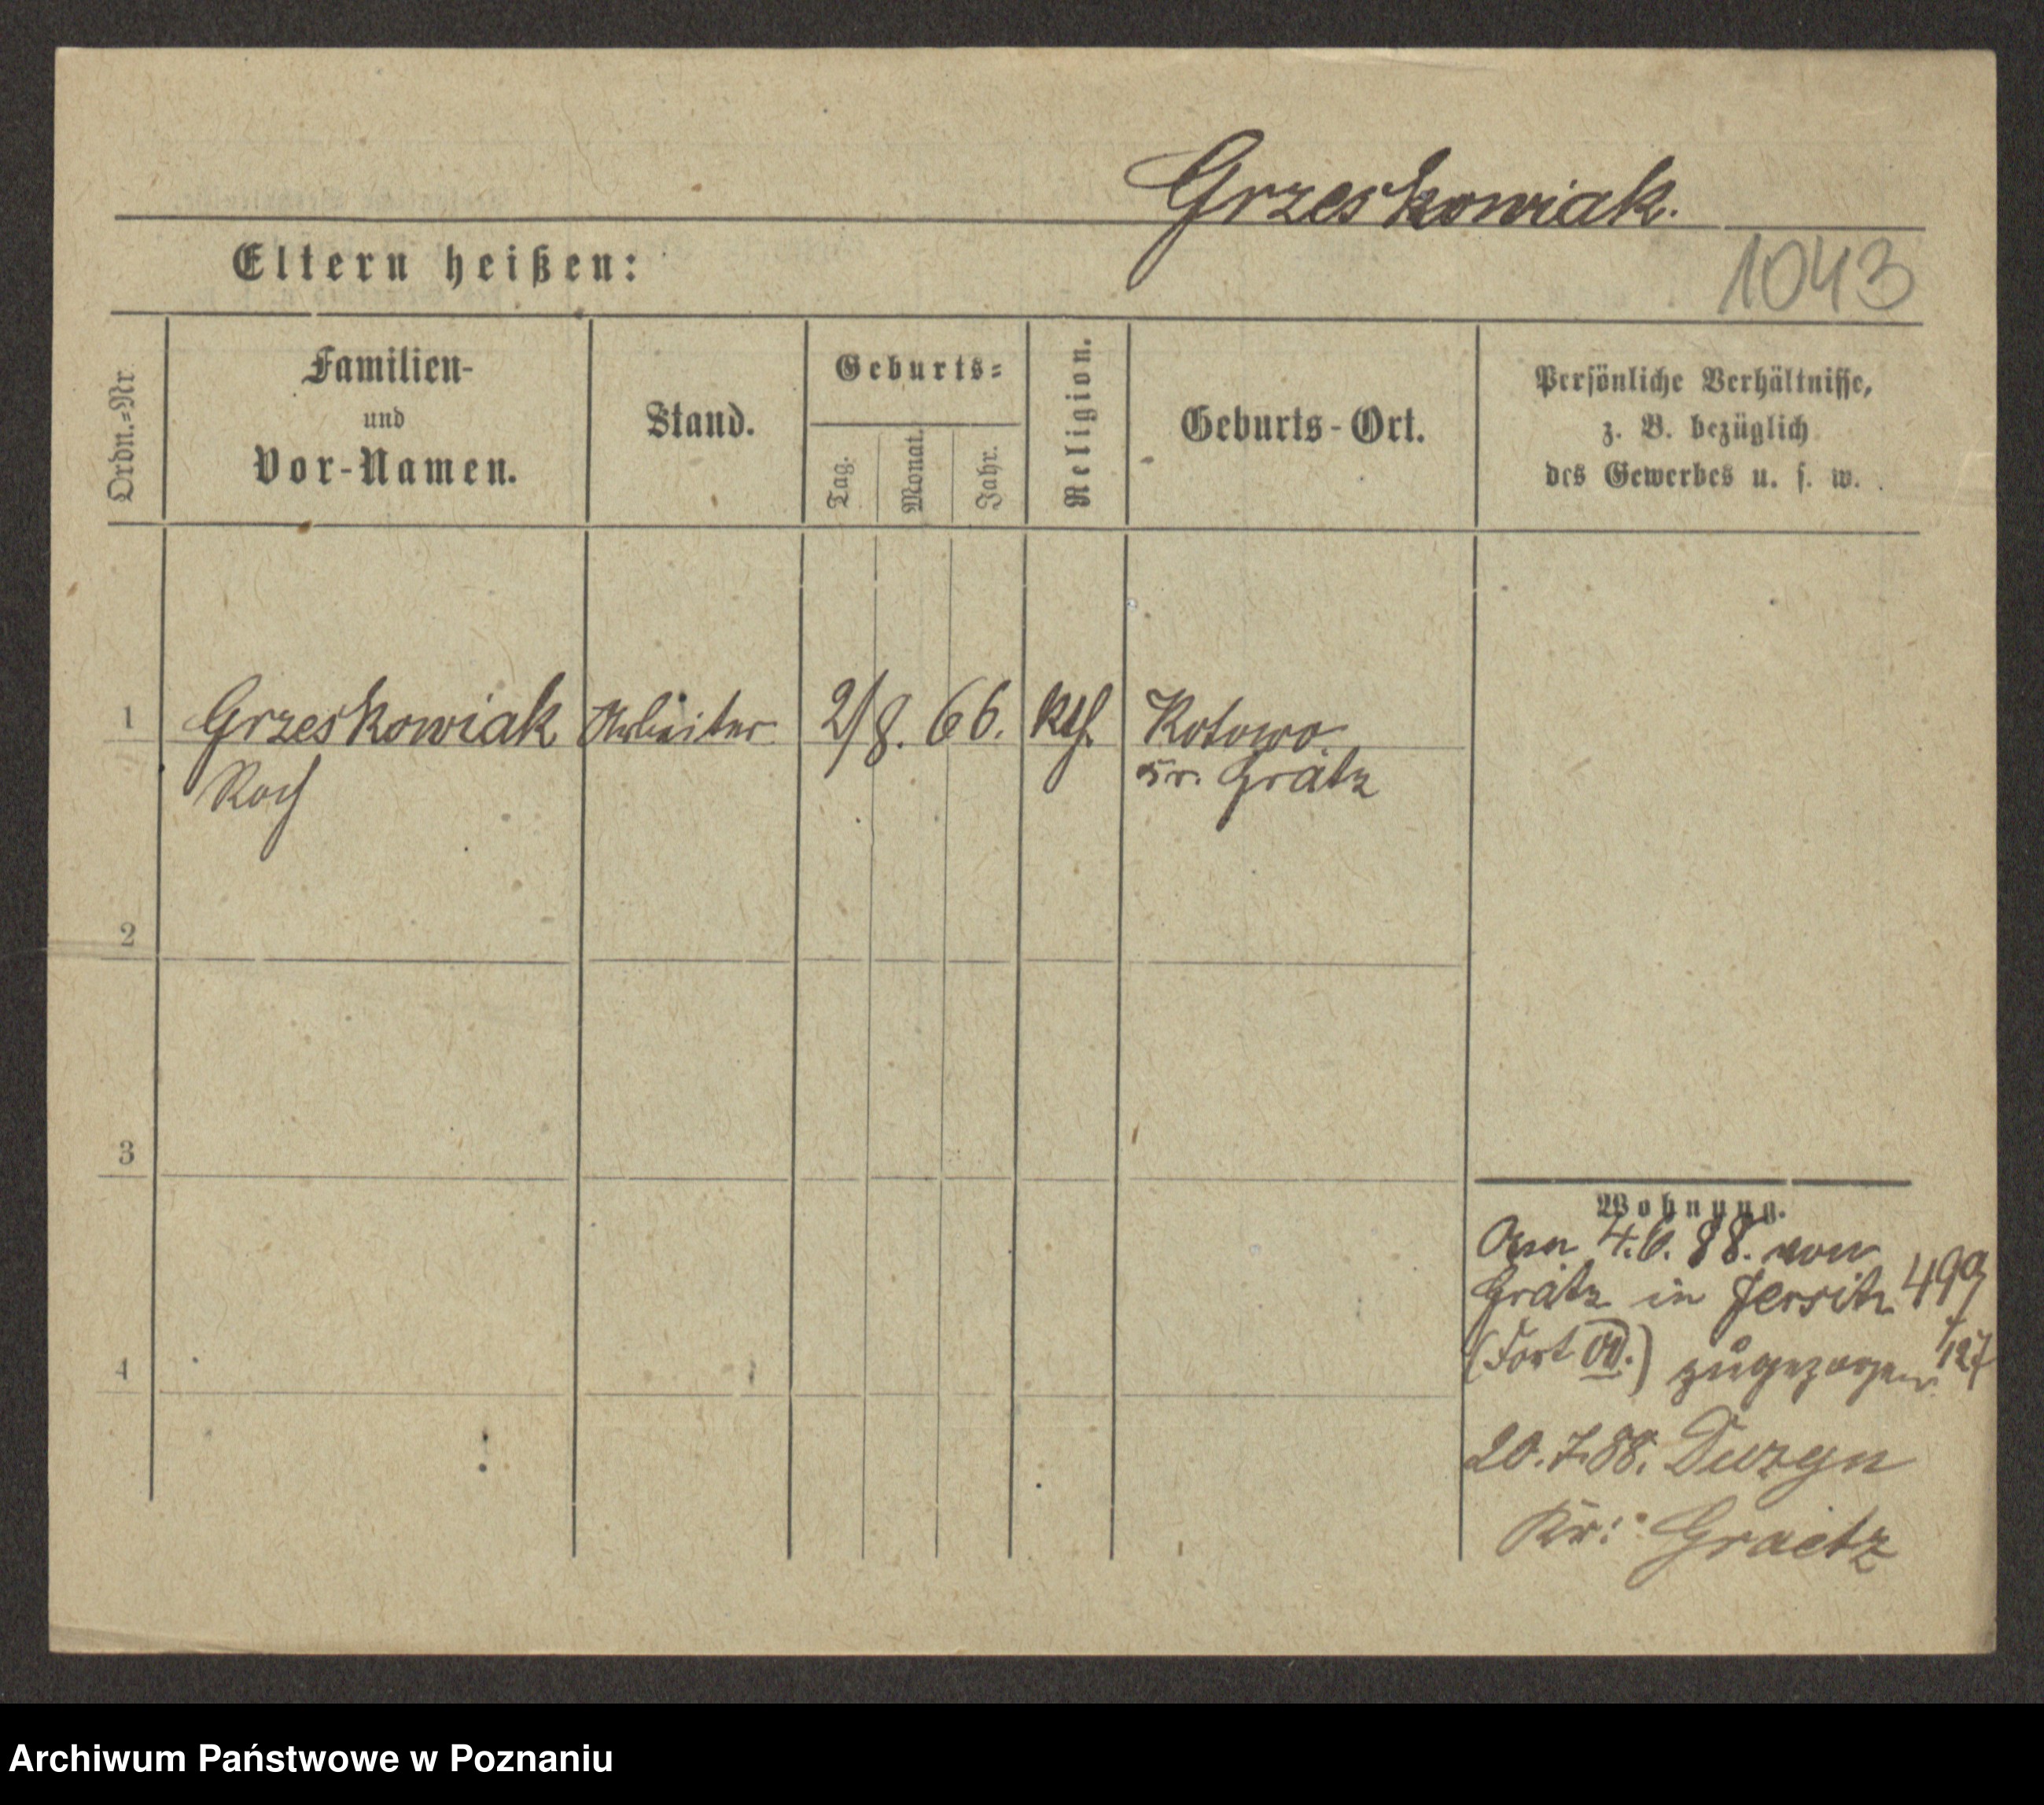 Grzeskowiak.
Eltern heißen:
1043
Ordn.=Nr.
Familien-
und
Vor-Namen.
Stand.
Geburts=
Tag.
Monat.
Jahr.
Religion.
Geburts-Ort.
Persönliche Verhältnisse,
z. B. bezüglich
des Gewerbes u. s. w.
1 Grzeskowiak Arbeiter 2/8. 66. kth. Kotowo
Roch Kr. Grätz
2
3
4
Wohnung.
Am 4.6.88. von
Grätz in Jersitz 499
(Fort VII.) zugezogen 127
20.7.88. Duzyn
Kr: Graetz
Archiwum Państwowe w Poznaniu